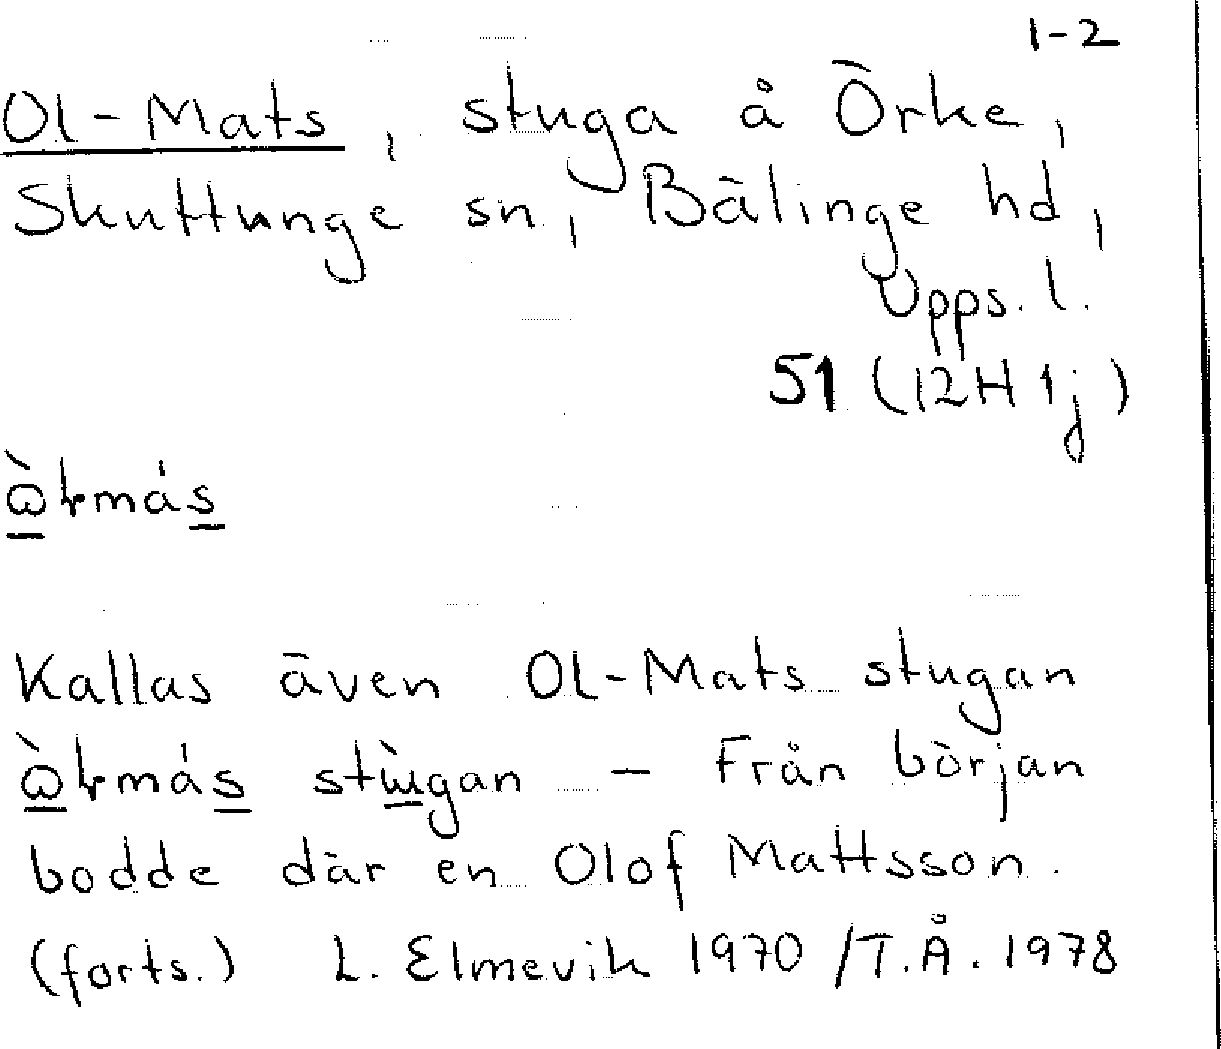 1-2
Ol-Mats, stuga å Örke,
Skuttunge sn, Bälinge hd,
Upps. l.
51 (12H 1j)
Kallas även Ol-Mats stugan
– Från början
bodde där en Olof Mattsson.
(forts.) L. Elmevik 1970 /T.Å. 1978